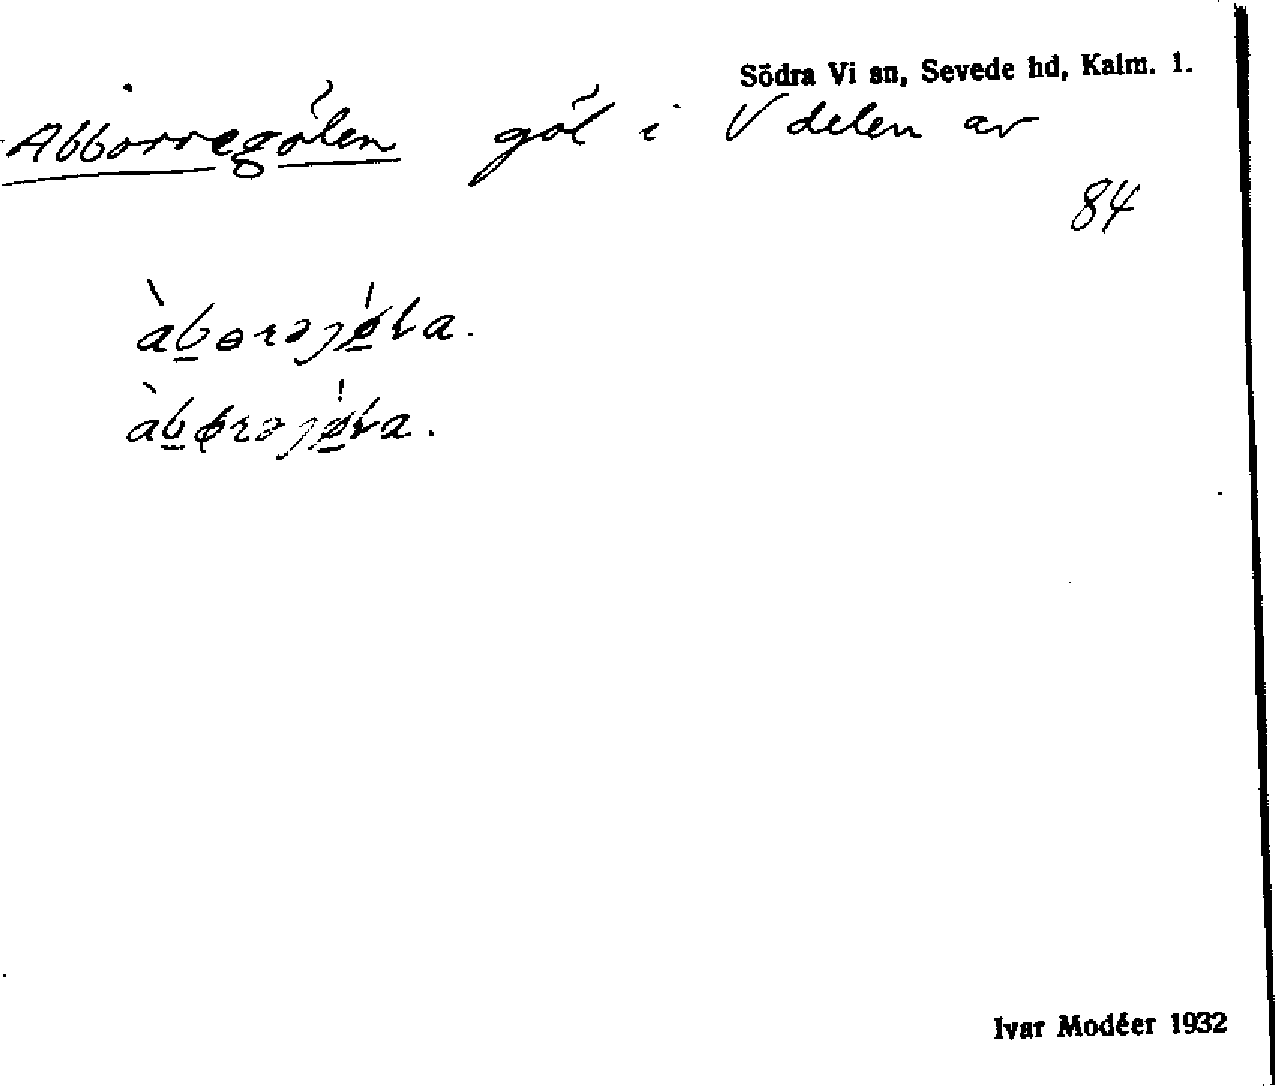 Södra Vi sn, Sevede hd, Kalm. l.
Abborregölen göl i V delen av
84
àb̲ɵrəjǿ̲ɫa.
àb̲ɵrəjǿ̲ɫa.
Ivar Modéer 1932